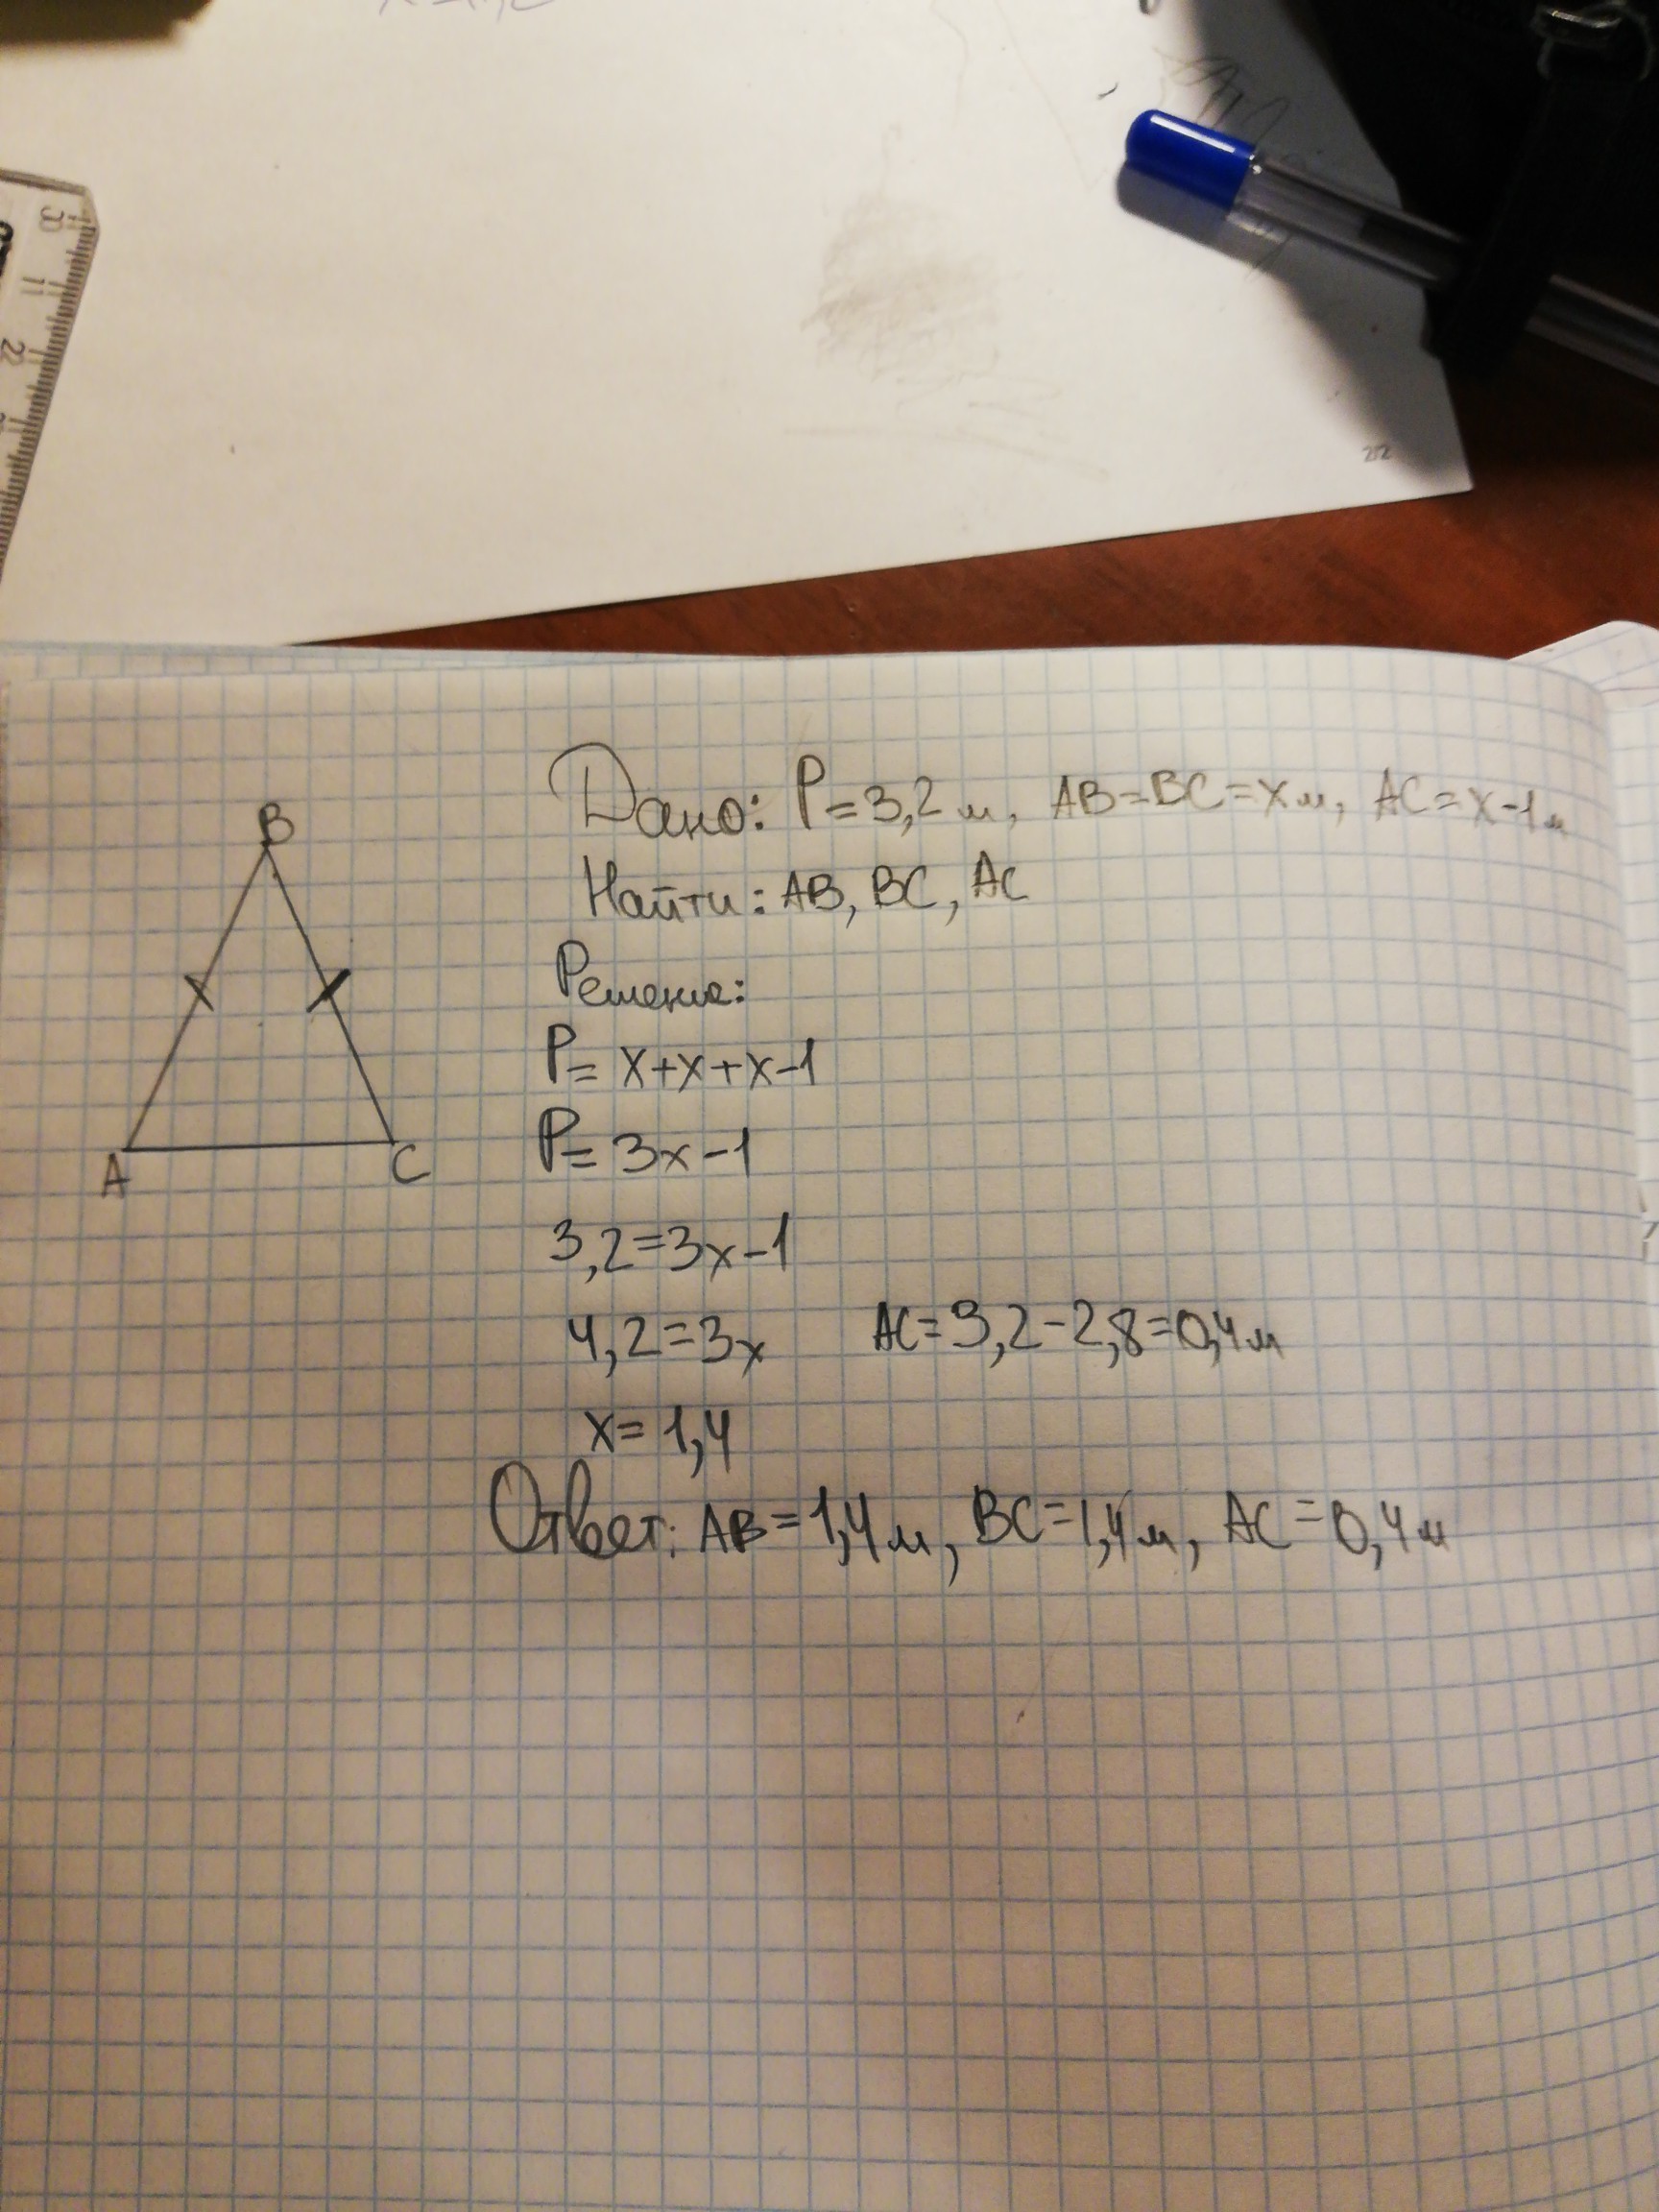 30
11
22
212
Дано: P=3,2м, AB=BC=xм, AC=x-1м
Найти: AB, BC, AC
B
Решение:
P=x+x+x-1
P=3x-1
A
C
3,2=3x-1
4,2=3x AC=3,2-2,8=0,4м
x=1,4
Ответ: AB=1,4м, BC=1,4м, AC=0,4м